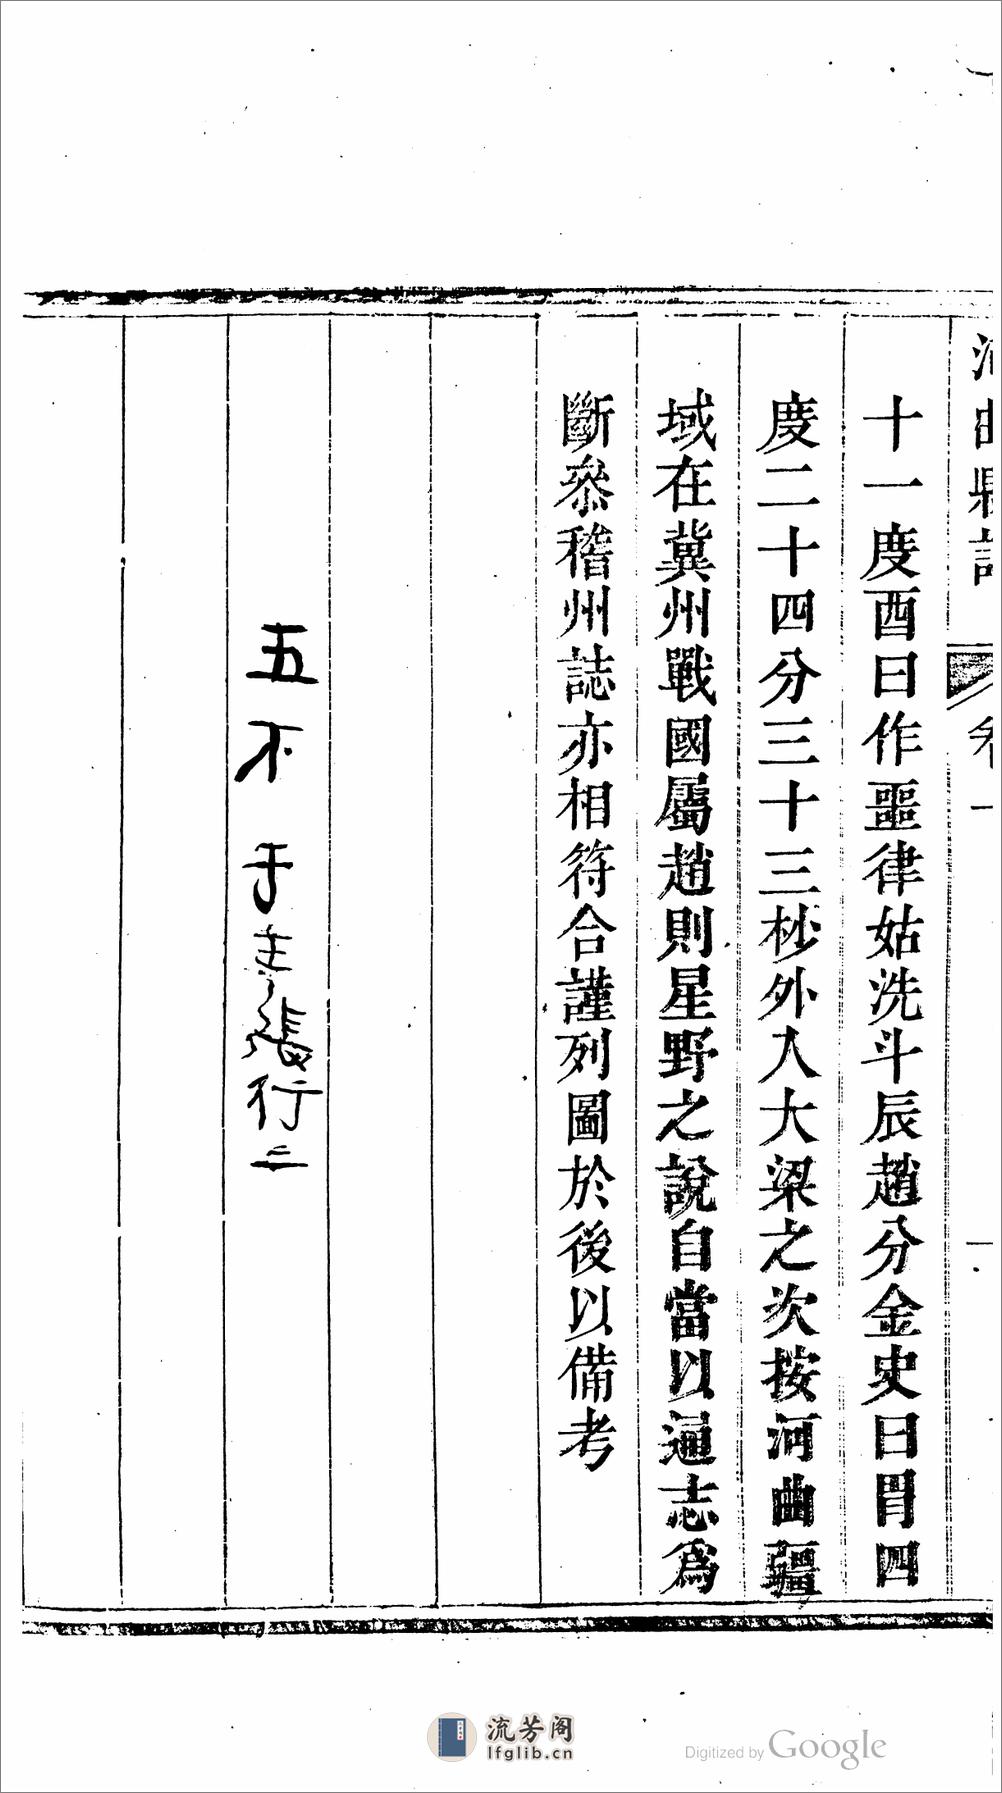 河曲縣誌 卷一 一
十一度酉曰作噩律姑洗斗辰趙分金史曰胃四
度二十四分三十三秒外入大梁之次按河曲疆
域在冀州戰國屬趙則星野之說自當以通志為
斷叅稽州誌亦相符合謹列圖於後以備考
五不于
張行二
流芳阁
lfglib.cn
Digitized by Google